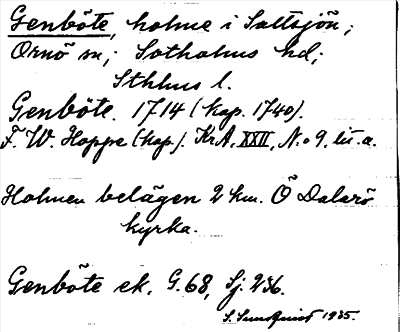 Genböte, holme i Saltsjön;
Ornö sn; Sotholms hd;
Sthlms l.
Genböte. 1714 (kop. 1740).
F. W. Hoppe (kop.). KrA, XXII, N:o 9, lit. a.
Holmen belägen 2 km. Ö Dalarö
kyrka.
Genböte ek. G. 68, Sj. 236.
S. Sundquist 1935.